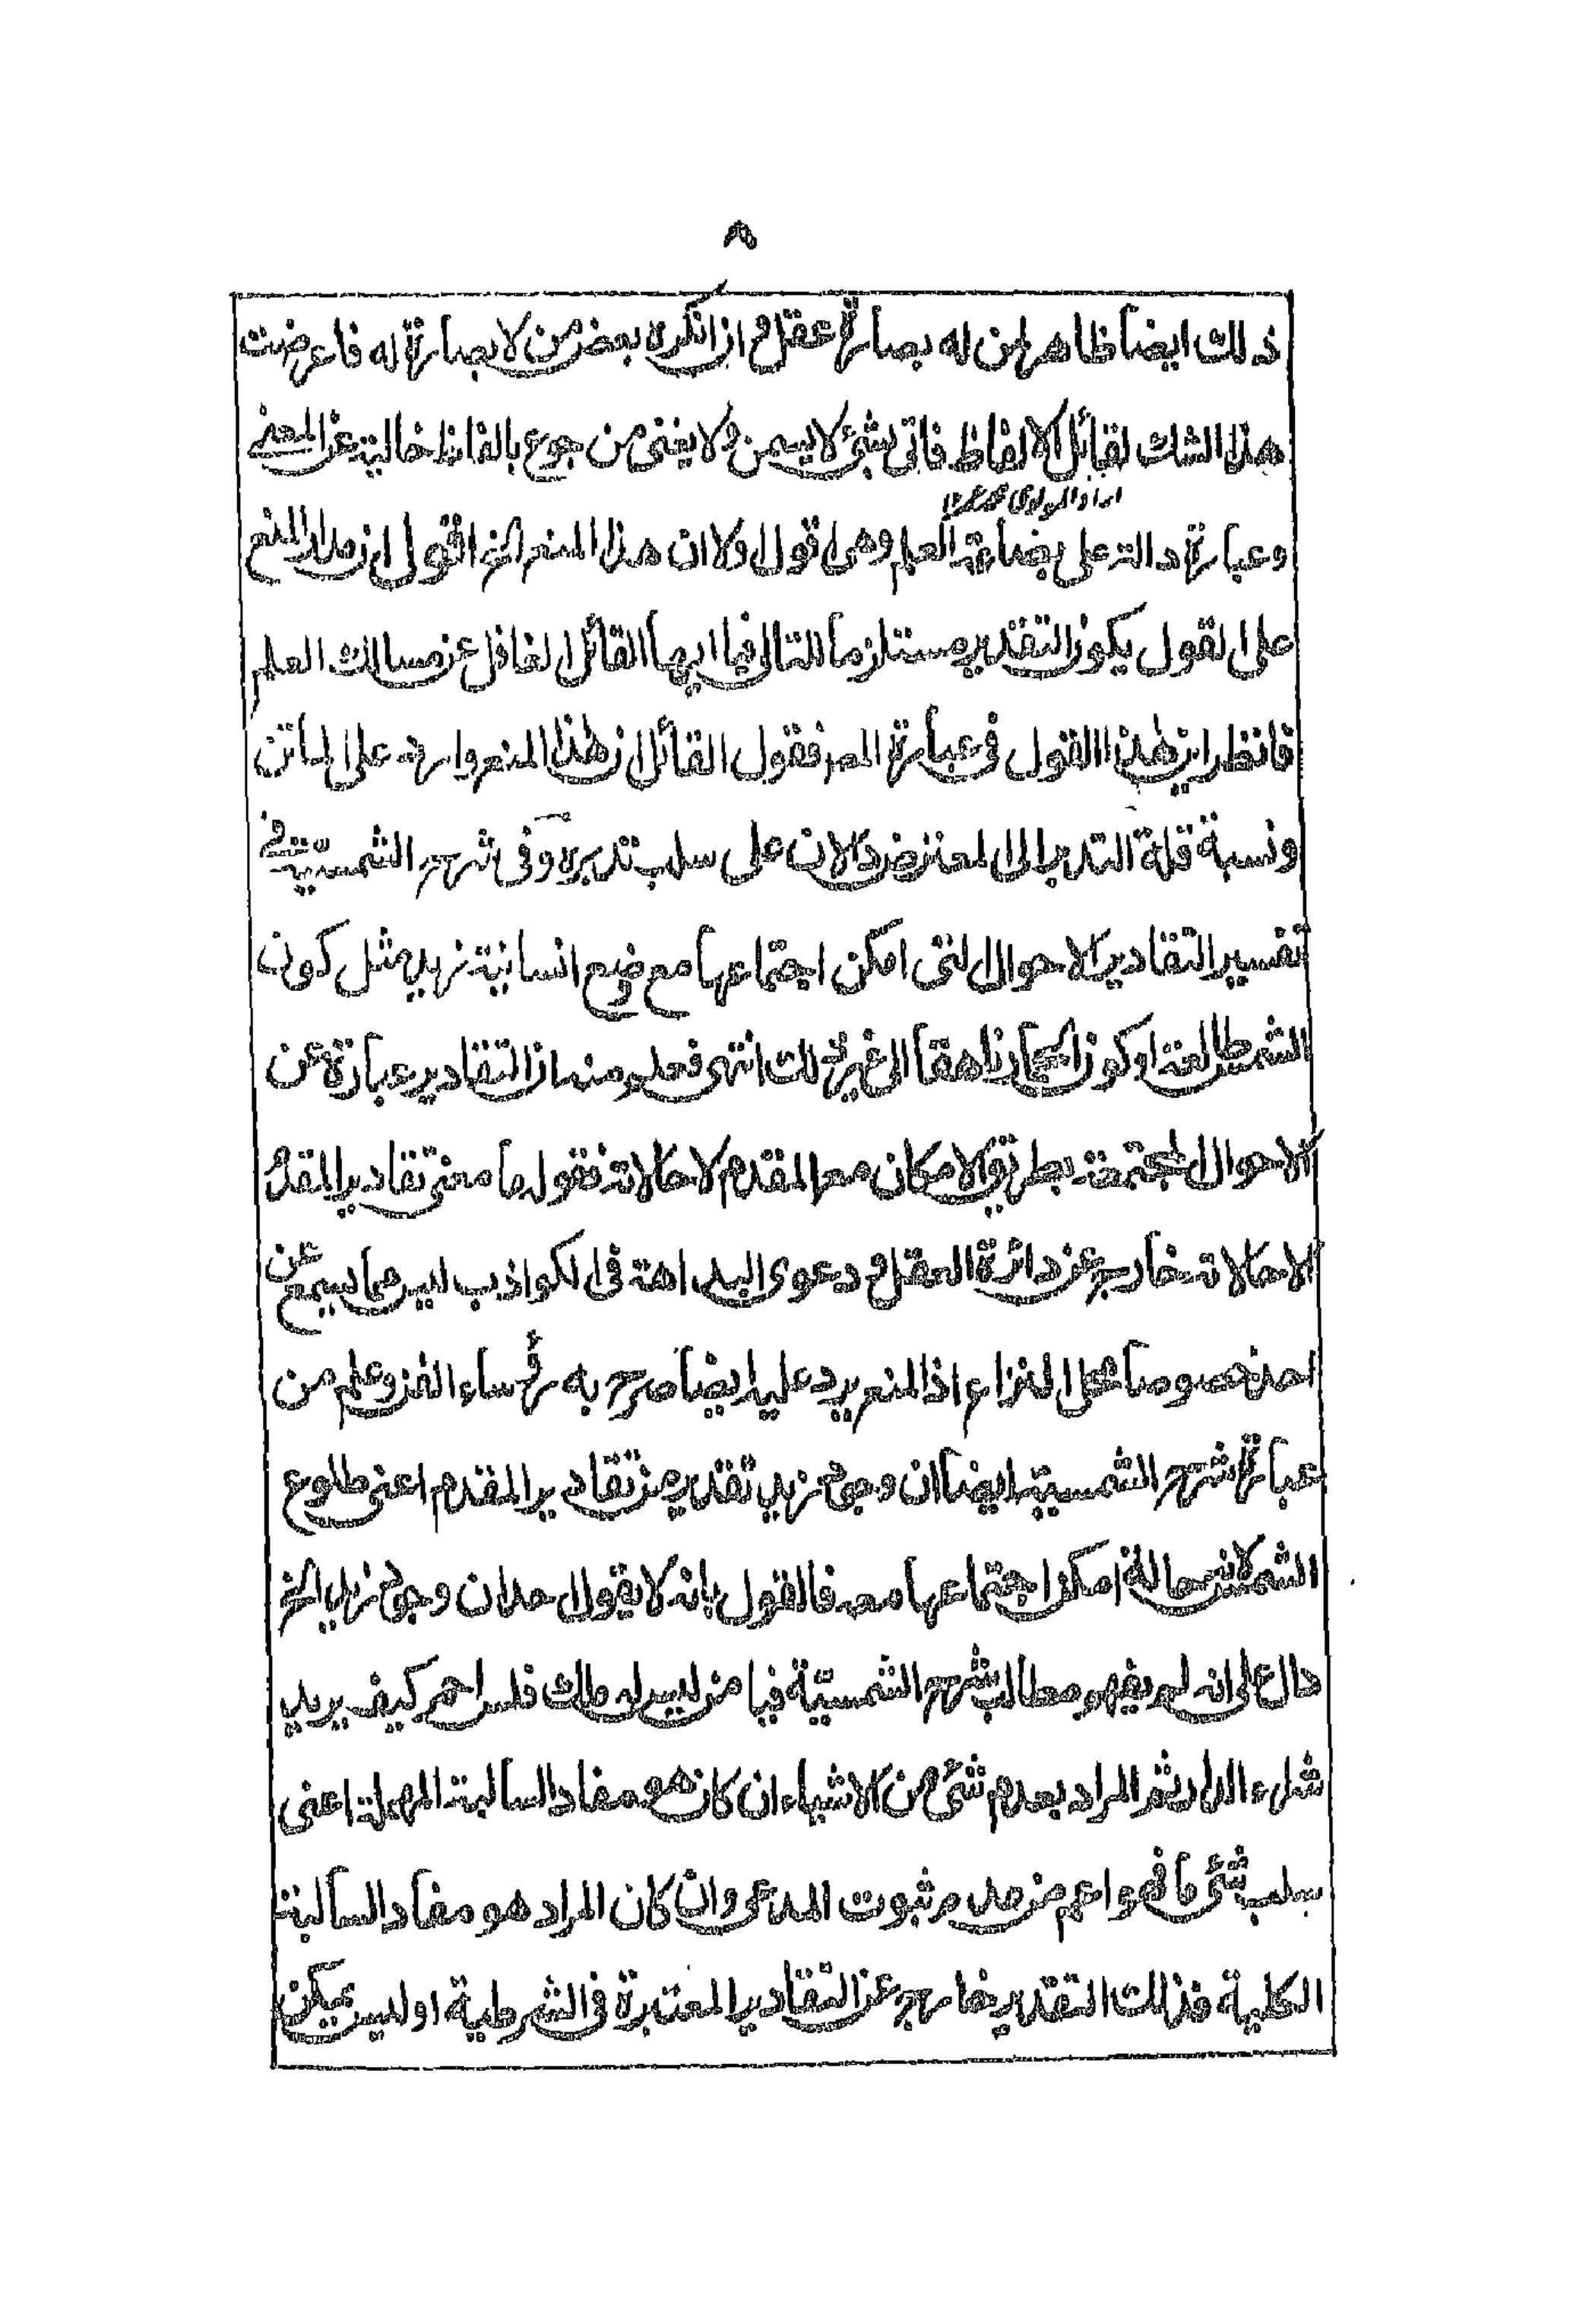 ٨
ذلك ايضا ظاهر لمن له بصارة عقل و ان انكره بعض من لا بصارة له فاعرضت
هذا الشك لقائل الالفاظ فاتى بشئ لا يسمن ولا يغنى من جوع بالفاظ خالية عن المعنى
وعبارة دالة على بضاعة العلم وهى اقول ولا ان هذا المنع الخ اقول ان مدار المنع
على القول يكون التقدير مستلزما للتالى فيا ايها القائل الغافل عن مسالك العلم
فانظر اين هذا القول فى عبارة المص فقول القائل ان هذا المنع وارد على الماتن
ونسبة قلة التدبر الى المعترض دالان على سلب تدبره وفى شرح الشمسية فى
تفسير التقادير الاحوال التى امكن اجتماعها مع وضع انسانية زيد مثل كون
الشمس طالعة او كون الحمار ناهقا الى غير ذلك انتهى فعلم منه ان التقادير عبارة عن
الاحوال المجتمعة بطريق الامكان مع المقدم لا حالاته فقوله ما معنى تقادير المقدم
الا حالاته خارج عن دائرة العقل و دعوى البداهة فى الكواذب ليس مما يسمع عن
احد خصوصا محل النزاع اذ المنع يرد عليه ايضا صرح به رؤساء الفن وعلم من
عبارة شرح الشمسية ايضا ان وجود زيد تقدير من تقادير المقدم اعنى طلوع
الشمس لانه حالة امكن اجتماعها معه فالقول بانه لا يقول احد ان وجود زيد الخ
دال على انه لم يفهم مطالب شرح الشمسية فيا من ليس له ملك فلس احمر كيف يريد
شراء الدار ثم المراد بعدم شئ من الاشياء ان كان هو مفاد السالبة المهملة اعنى
سلب شئ ما فهو اعم من عدم ثبوت المدعى وان كان المراد هو مفاد السالبة
الكلية فذلك التقدير خارج عن التقادير المعتبرة فى الشرطية او ليس يمكن